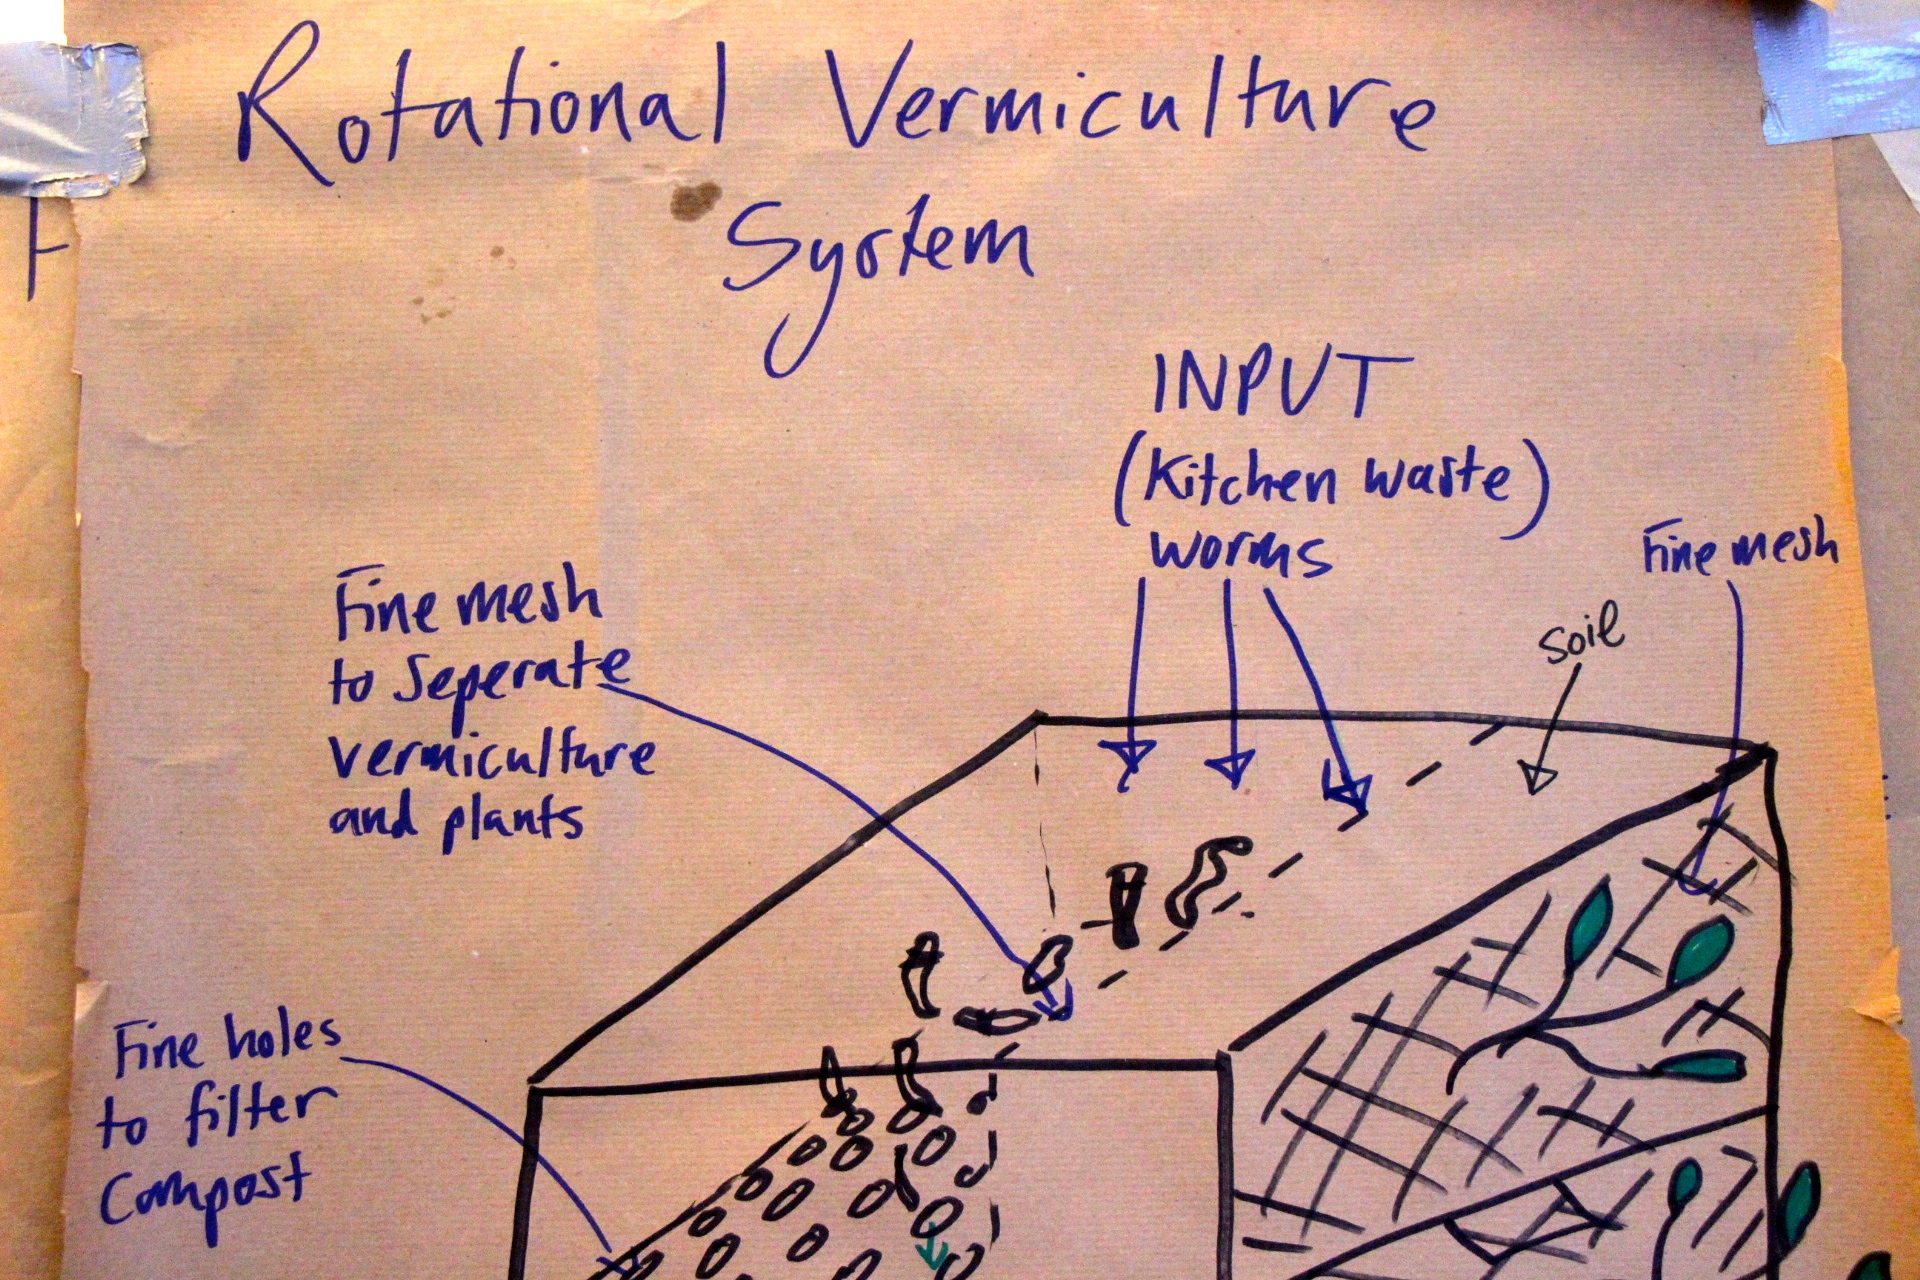 Rotational Vermiculture
System
INPUT
(Kitchen waste)
worms
Fine mesh
Soil
Fine mesh
to Seperate
vermiculture
and plants
Fine holes
to filter
Compost
F